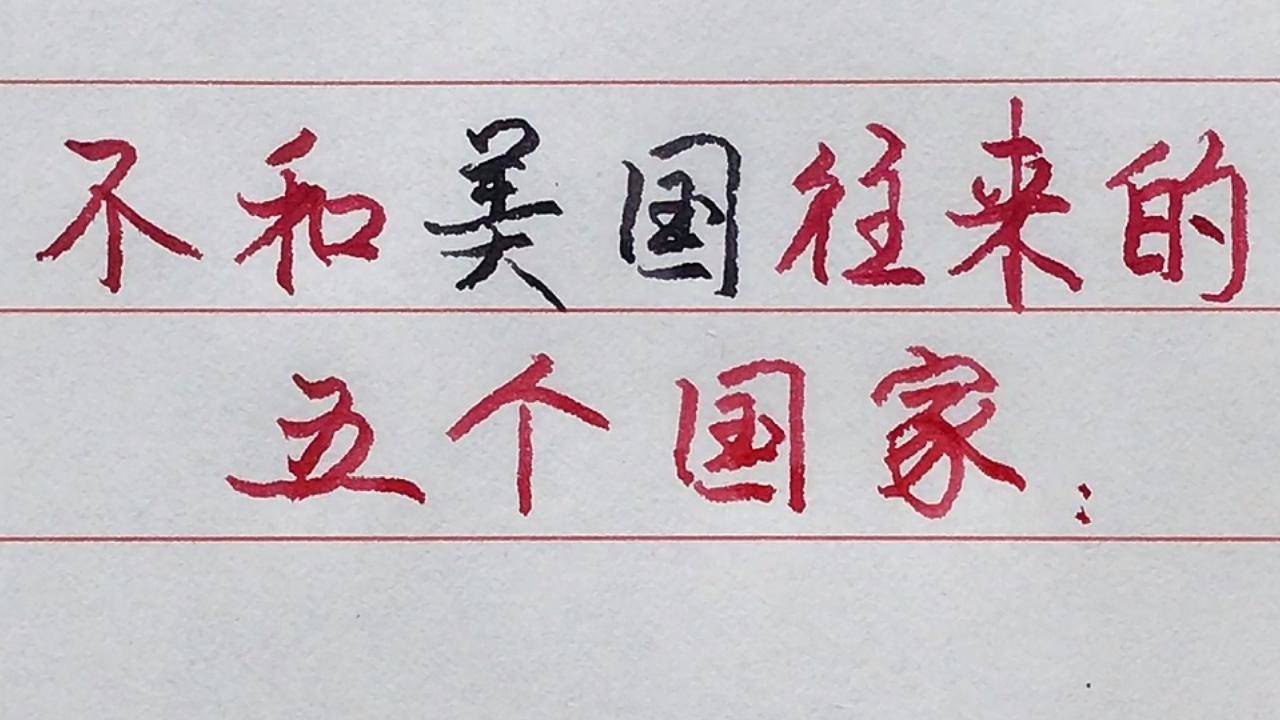 不和美国往来的
五个国家：